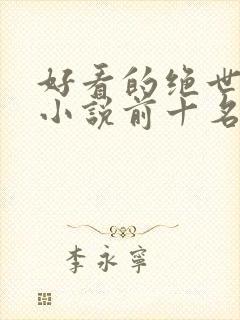 好看的绝世
小说前十名
李永宁